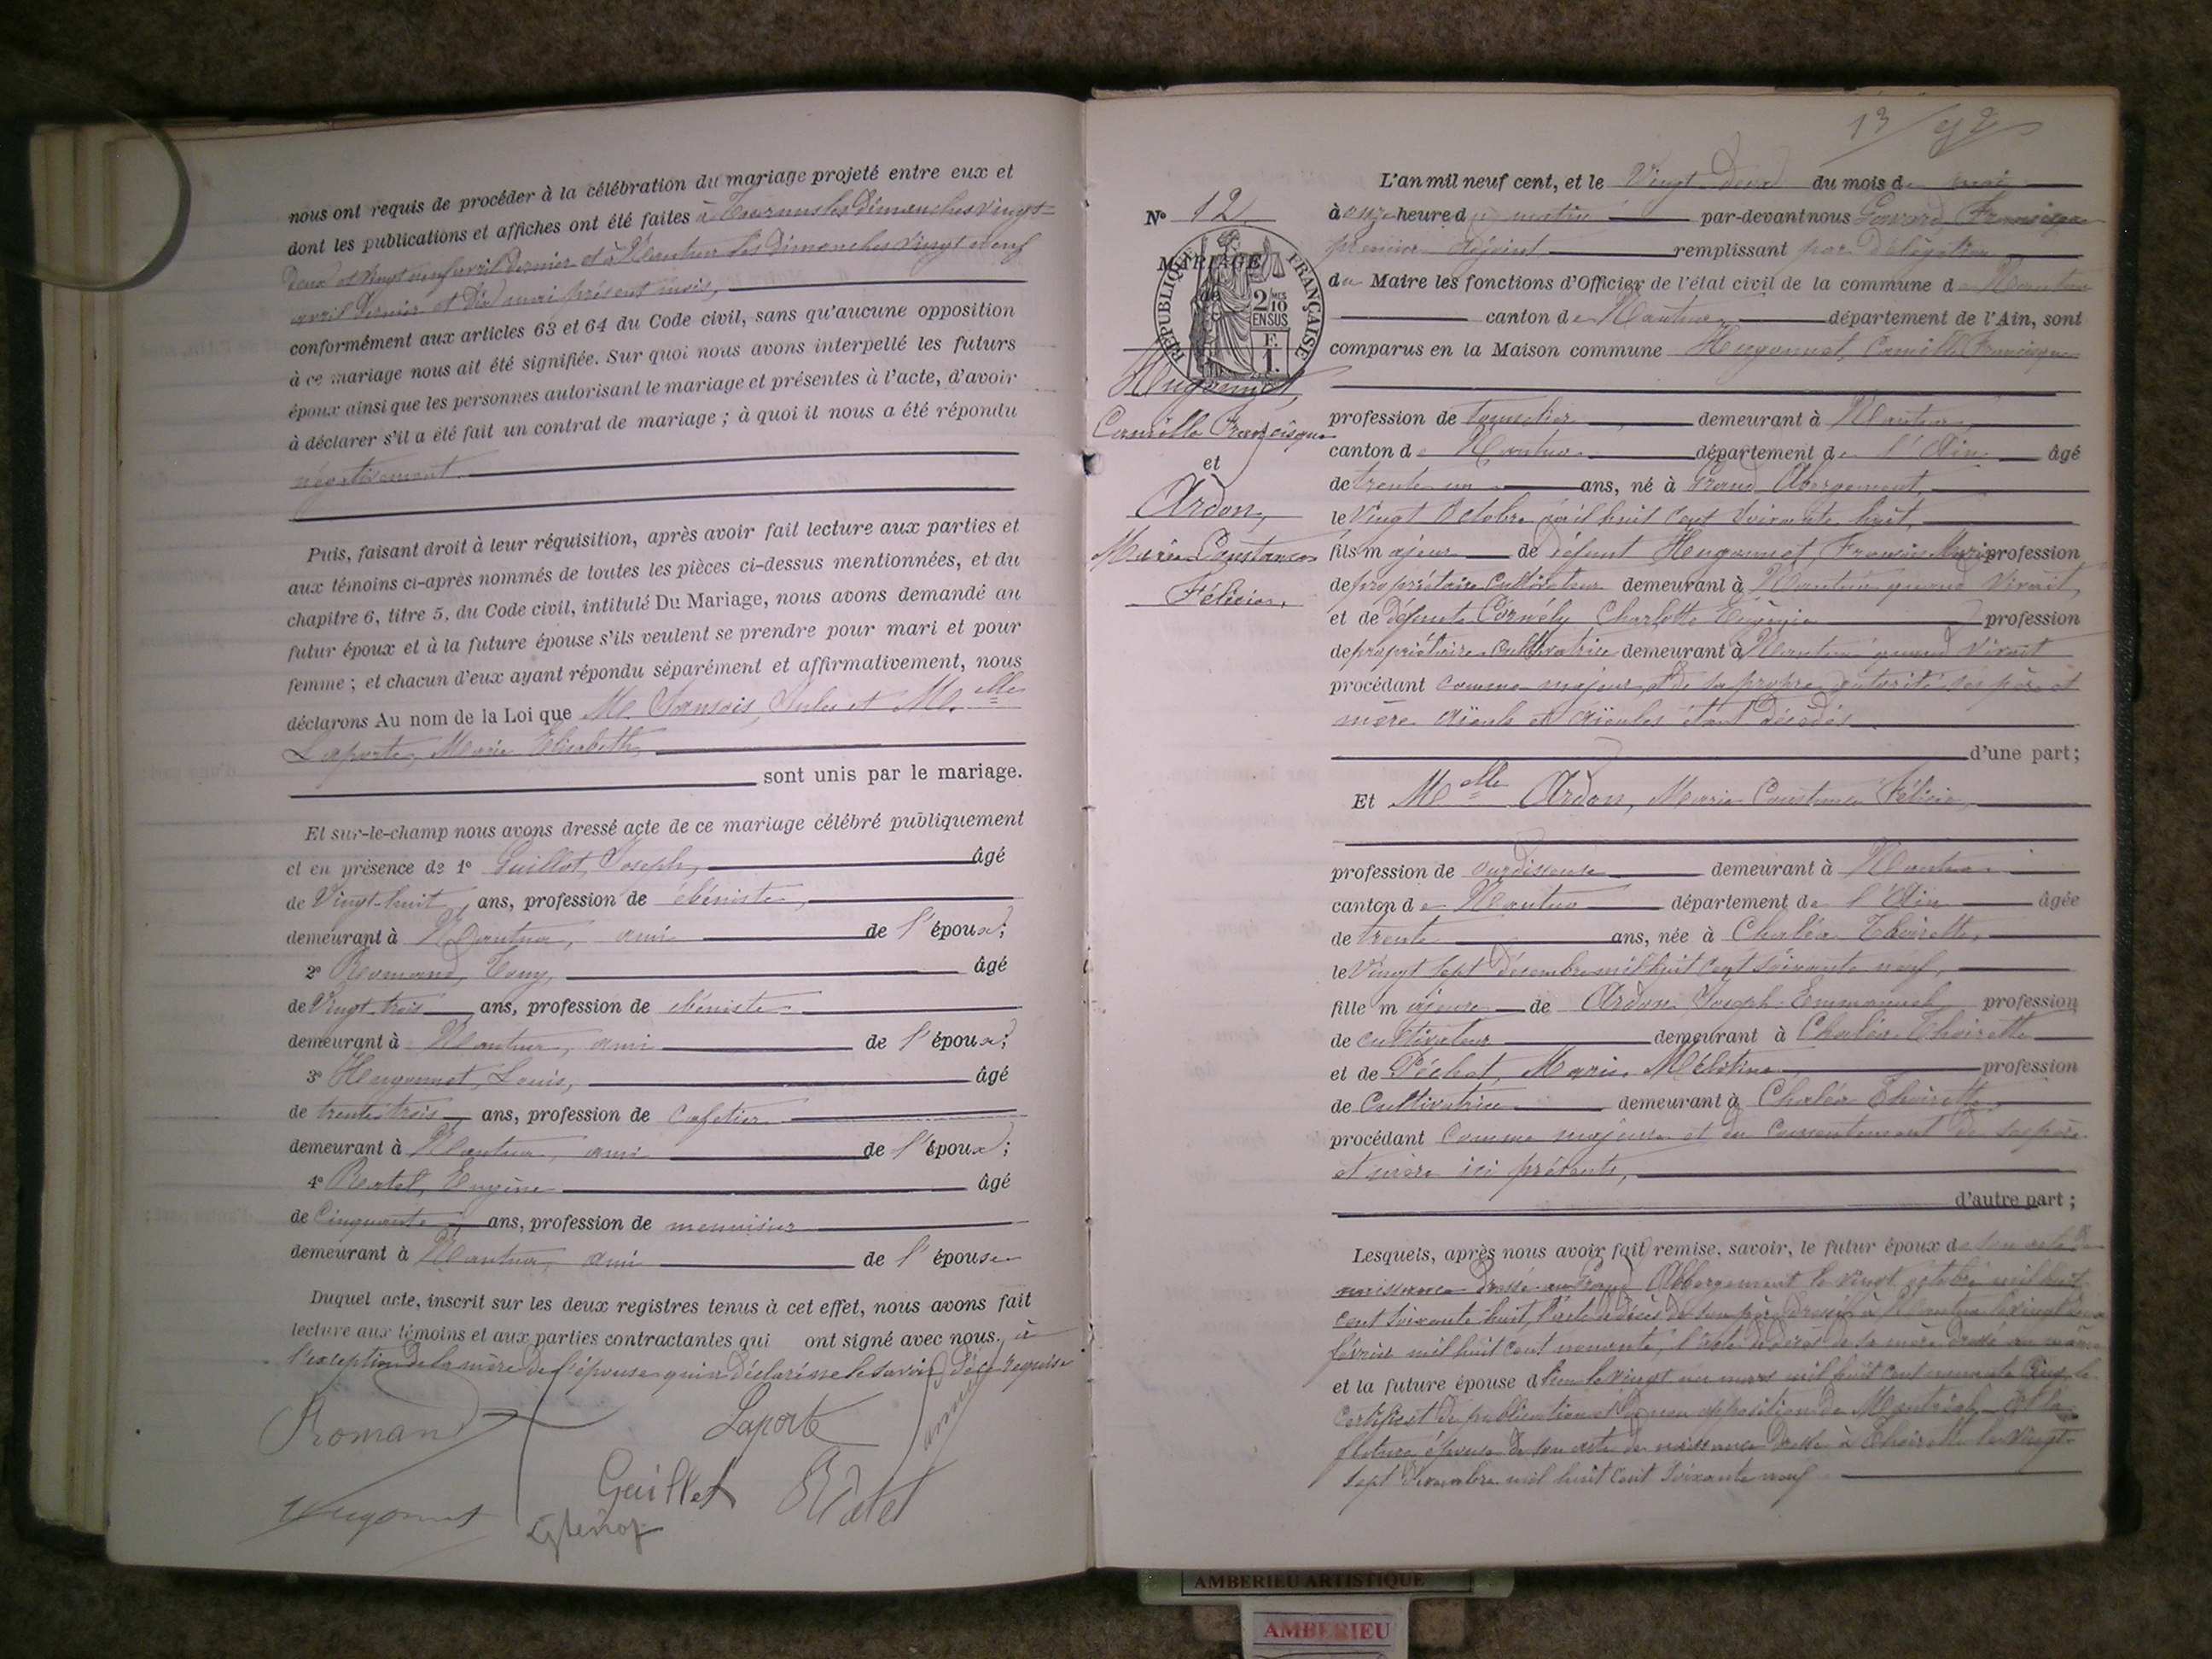 nous ont requis de procéder à la célébration du mariage projeté entre eux et
dont les publications et affiches ont été faites à les Dimanches vingt-
deux et vingt neuf avril dernier et à Nantua les Dimanches vingt neuf
avril dernier et mai présent mois,
conformément aux articles 63 et 64 du Code civil, sans qu'aucune opposition
à ce mariage nous ait été signifiée. Sur quoi nous avons interpellé les futurs
époux ainsi que les personnes autorisant le mariage et présentes à l'acte, d'avoir
à déclarer s'il a été fait un contrat de mariage ; à quoi il nous a été répondu
négativement.
Puis, faisant droit à leur réquisition, après avoir fait lecture aux parties et
aux témoins ci-après nommés de toutes les pièces ci-dessus mentionnées, et du
chapitre 6, titre 5, du Code civil, intitulé Du Mariage, nous avons demandé au
futur époux et à la future épouse s'ils veulent se prendre pour mari et pour
femme ; et chacun d'eux ayant répondu séparément et affirmativement, nous
déclarons Au nom de la Loi que M. Jules et Melle
Laporte, Marie Elisabeth,
sont unis par le mariage.
Et sur-le-champ nous avons dressé acte de ce mariage célébré publiquement
et en présence de 1° Guillot, Joseph, âgé
de Vingt-huit ans, profession de ébéniste,
demeurant à Nantua, ami de l'époux ;
2° Romand, Tony, âgé
de Vingt trois ans, profession de ébéniste
demeurant à Nantua, ami de l'époux ;
3° Hugonnet, Louis, âgé
de trente trois ans, profession de cafetier
demeurant à Nantua, ami de l'époux ;
4° Ratel, Eugène âgé
de Cinquante ans, profession de menuisier
demeurant à Nantua, ami de l'épouse
Duquel acte, inscrit sur les deux registres tenus à cet effet, nous avons fait
lecture aux témoins et aux parties contractantes qui ont signé avec nous, à
l'exception de la mère de l'épouse qui a déclaré ne le savoir de ce requise
Romand
Laporte
Guillot
Ratel
Hugonnet
13 / 92
N° 12
MARIAGE
de
RÉPUBLIQUE FRANÇAISE
2/10 EN SUS
1 F.
Hugonnet,
Camille Francisque
et
Ardon,
Marie Constance
Félicie.
L'an mil neuf cent, et le Vingt-deux du mois de mai
à onze heure du matin par-devant nous Francisque
premier Adjoint remplissant par Délégation
du Maire les fonctions d'Officier de l'état civil de la commune de Nantua
canton de Nantua département de l'Ain, sont
comparus en la Maison commune Hugonnet, Camille Francisque
profession de demeurant à Nantua
canton de Nantua département de l'Ain âgé
de trente un ans, né à Grand Abergement,
le Vingt Octobre mil huit cent soixante huit,
fils majeur de défunt Hugonnet, Francis Marie profession
de propriétaire cultivateur demeurant à Nantua quand vivait,
et de défunte Cornély Charlotte Eugénie profession
de propriétaire cultivatrice demeurant à Nantua quand vivait
procédant comme majeur et de sa propre autorité ses père et
mère aïeuls et aïeules étant décédés
d'une part ;
Et Melle Ardon, Marie Constance Félicie,
profession de ourdisseuse demeurant à Nantua
canton de Nantua département de l'Ain âgée
de trente ans, née à Chaléa Thoirette,
le Vingt sept décembre mil huit cent soixante neuf,
fille majeure de Ardon Joseph Emmanuel profession
de cultivateur demeurant à Chaléa Thoirette
et de Péchet, Marie profession
de Cultivatrice demeurant à Chaléa Thoirette,
procédant comme majeure et du consentement de ses père
et mère ici présents,
d'autre part ;
Lesquels, après nous avoir fait remise, savoir, le futur époux de son acte de
naissance dressé au Grand Abbergement le vingt octobre mil huit
cent soixante huit, l'acte de décès de son père dressé à Nantua le vingt
février mil huit cent nonante, l'acte de décès de sa mère dressé au même
et la future épouse d lieu le vingt un mars mil huit cent nonante cinq, le
certificat de publication et de non opposition de Montréal. Et la
future épouse de son acte de naissance dressé à Thoirette le vingt-
sept décembre mil huit cent soixante neuf
AMBERIEU ARTISTIQUE
AMBERIEU